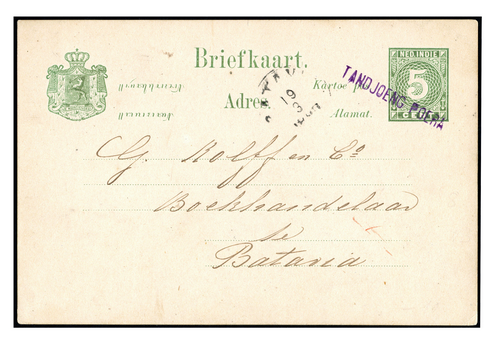 Briefkaart.
NED. INDIE
5
CENT
Kartoe p
TANDJOENG POERA
19
3
Adre
Alamat.
G. Kolff en Co
Boekhandelaar
te
Batavia